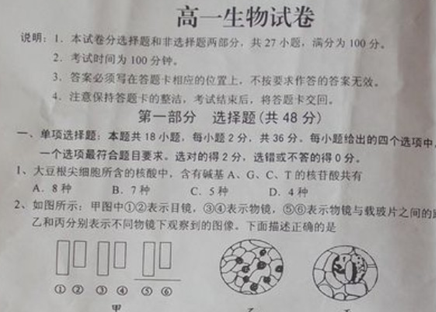 高一生物试卷
说明：1．本试卷分选择题和非选择题两部分，共27小题，满分为100分。
2．考试时间为100分钟。
3．答案必须写在答题卡相应的位置上，不按要求作答的答案无效。
4．注意保持答题卡的整洁，考试结束后，将答题卡交回。
第一部分 选择题(共48分)
一、单项选择题：本题共18小题，每小题2分，共36分，每小题给出的四个选项中，
一个选项最符合题目要求。选对的得2分，选错或不答的得0分。
1、大豆根尖细胞所含的核酸中，含有碱基A、G、C、T的核苷酸共有
A．8种 B．7种 C．5种 D．4种
2、如图所示：甲图中①②表示目镜，③④表示物镜，⑤⑥表示物镜与载玻片之间的
乙和丙分别表示不同物镜下观察到的图像。下面描述正确的是
① ② ③ ④ ⑤ ⑥